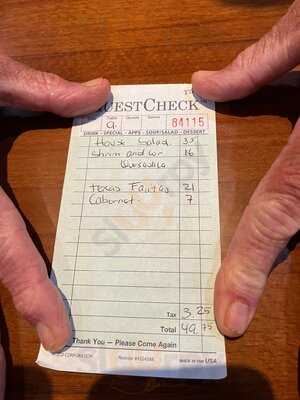 GUESTCHECK
Table Guests Server
9 84115
DRINK - SPECIAL - APPS - SOUP/SALAD - DESSERT
House Salad
Shrim and
Quesadilla 16
Texas Fajitas 21
Cabernet 7
Tax 3.25
Total 49.75
Thank You — Please Come Again
MADE IN THE USA